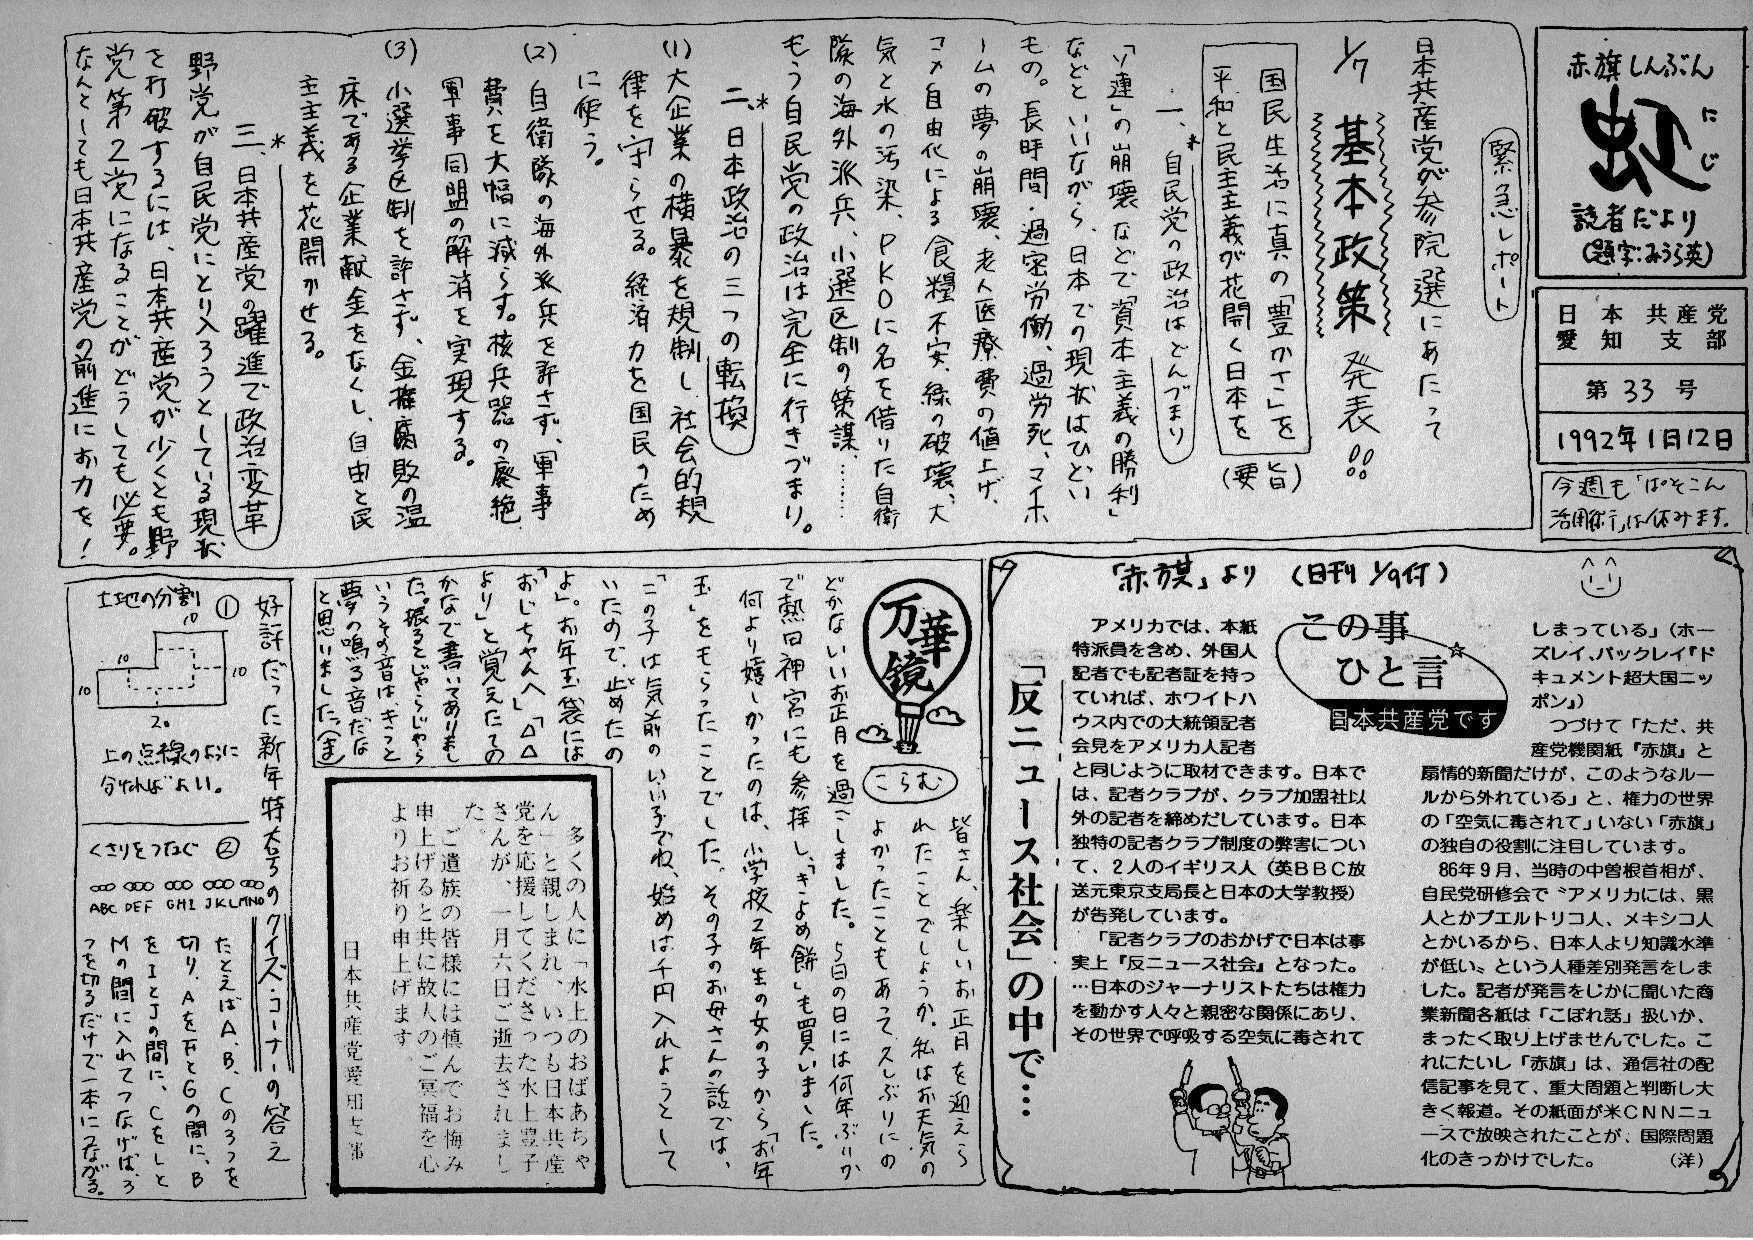 赤旗しんぶん
虹
にじ
読者だより
(題字:みうら英)
日本共産党
愛知支部
第33号
1992年1月12日
今週も「ぱそこん
活用術」は休みます。
緊急レポート
日本共産党が参院選にあたって
1/7 基本政策 発表!!
国民生活に真の「豊かさ」を
平和と民主主義が花開く日本を
(要旨)
一、自民党の政治はどんづまり
「ソ連」の崩壊などで「資本主義の勝利」
などといいながら、日本での現状はひどい
もの。長時間・過密労働、過労死、マイホ
ームの夢の崩壊、老人医療費の値上げ、
コメ自由化による食糧不安、緑の破壊、大
気と水の汚染、PKOに名を借りた自衛
隊の海外派兵、小選区制の策謀、……
もう自民党の政治は完全に行きづまり。
二、日本政治の三つの転換
(1)大企業の横暴を規制し、社会的規
律を守らせる。経済力を国民のため
に使う。
(2)自衛隊の海外派兵を許さず、軍事
費を大幅に減らす。核兵器の廃絶、
軍事同盟の解消を実現する。
(3)小選挙区制を許さず、金権腐敗の温
床である企業献金をなくし、自由と民
主主義を花開かせる。
三、日本共産党の躍進で政治変革
野党が自民党にとり入ろうとしている現状
を打破するには、日本共産党が少くとも野
党第2党になることがどうしても必要。
なんとしても日本共産党の前進にお力を!
「赤旗」より (日刊1/9付)
この事
ひと言
日本共産党です
「反ニュース社会」の中で…
アメリカでは、本紙
特派員を含め、外国人
記者でも記者証を持っ
ていれば、ホワイトハ
ウス内での大統領記者
会見をアメリカ人記者
と同じように取材できます。日本で
は、記者クラブが、クラブ加盟社以
外の記者を締めだしています。日本
独特の記者クラブ制度の弊害につい
て、2人のイギリス人(英BBC放
送元東京支局長と日本の大学教授)
が告発しています。
「記者クラブのおかげで日本は事
実上『反ニュース社会』となった。
…日本のジャーナリストたちは権力
を動かす人々と親密な関係にあり、
その世界で呼吸する空気に毒されて
しまっている」(ホー
ズレイ、バックレイ『ド
キュメント超大国ニッ
ポン』)
つづけて「ただ、共
産党機関紙『赤旗』と
扇情的新聞だけが、このようなルー
ルから外れている」と、権力の世界
の「空気に毒されて」いない「赤旗」
の独自の役割に注目しています。
86年9月、当時の中曽根首相が、
自民党研修会で〝アメリカには、黒
人とかプエルトリコ人、メキシコ人
とかいるから、日本人より知識水準
が低い〟という人種差別発言をしま
した。記者が発言をじかに聞いた商
業新聞各紙は「こぼれ話」扱いか、
まったく取り上げませんでした。こ
れにたいし「赤旗」は、通信社の配
信記事を見て、重大問題と判断し大
きく報道。その紙面が米CNNニュ
ースで放映されたことが、国際問題
化のきっかけでした。 (洋)
万華鏡
こらむ
皆さん、楽しいお正月を迎えら
れたことでしょうか。私はお天気の
よかったこともあって久しぶりにの
どかないいお正月を過ごしました。5日の日には何年ぶりか
で熱田神宮にも参拝し、「きよめ餅」も買いました。
何より嬉しかったのは、小学校2年生の女の子から「お年
玉」をもらったことでした。その子のお母さんの話では、
「この子は気前のいい子でね、始めは千円入れようとして
いたので、止めたの
よ」。お年玉袋には
「おじちゃんへ」「△△
より」と覚えたての
かなで書いてありまし
た。振るとじゃらじゃら
いうその音は、きっと
夢の鳴る音だな
と思いました。(ま)
多くの人に「水上のおばあちゃ
ん」と親しまれ、いつも日本共産
党を応援してくださった水上豊子
さんが、一月六日ご逝去されまし
た。
ご遺族の皆様には慎んでお悔み
申上げると共に故人のご冥福を心
よりお祈り申上げます。
日本共産党愛知支部
好評だった新年特大号のクイズ・コーナーの答え
土地の分割 ①
10
10
10
10
20
上の点線のように
分ければよい。
くさりをつなぐ ②
ABC DEF GHI JKL MNO
たとえばA、B、Cの3つを
切り、AをFとGの間に、B
をIとJの間に、CをLと
Mの間に入れてつなげば、3
つを切るだけで一本につながる。